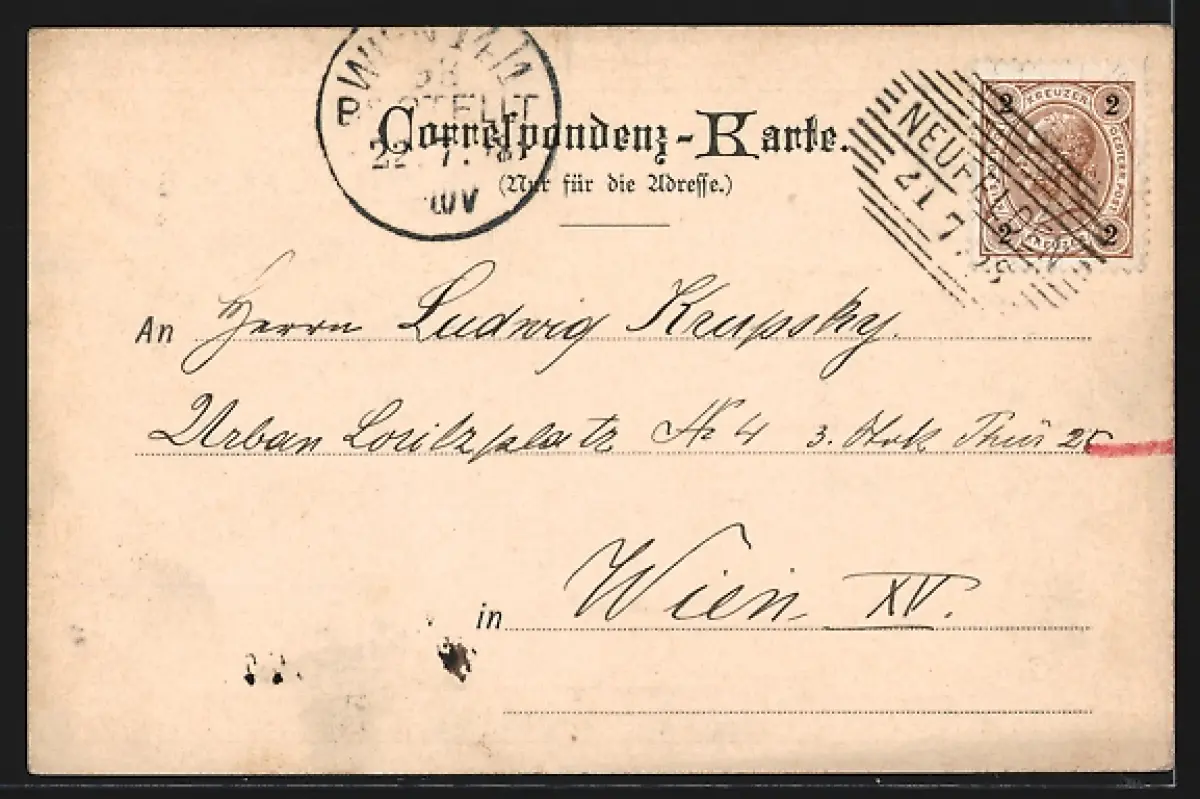 WIEN 14/1
BESTELLT
22. 7.
Correspondenz-Karte.
(Nur für die Adresse.)
2 KREUZER 2
2 KREUZER 2
NEUFELDEN
21 7
An Herrn Ludwig Krupsky.
Urban Loritzplatz No 4 3. Stok Thür 25
in Wien XV.